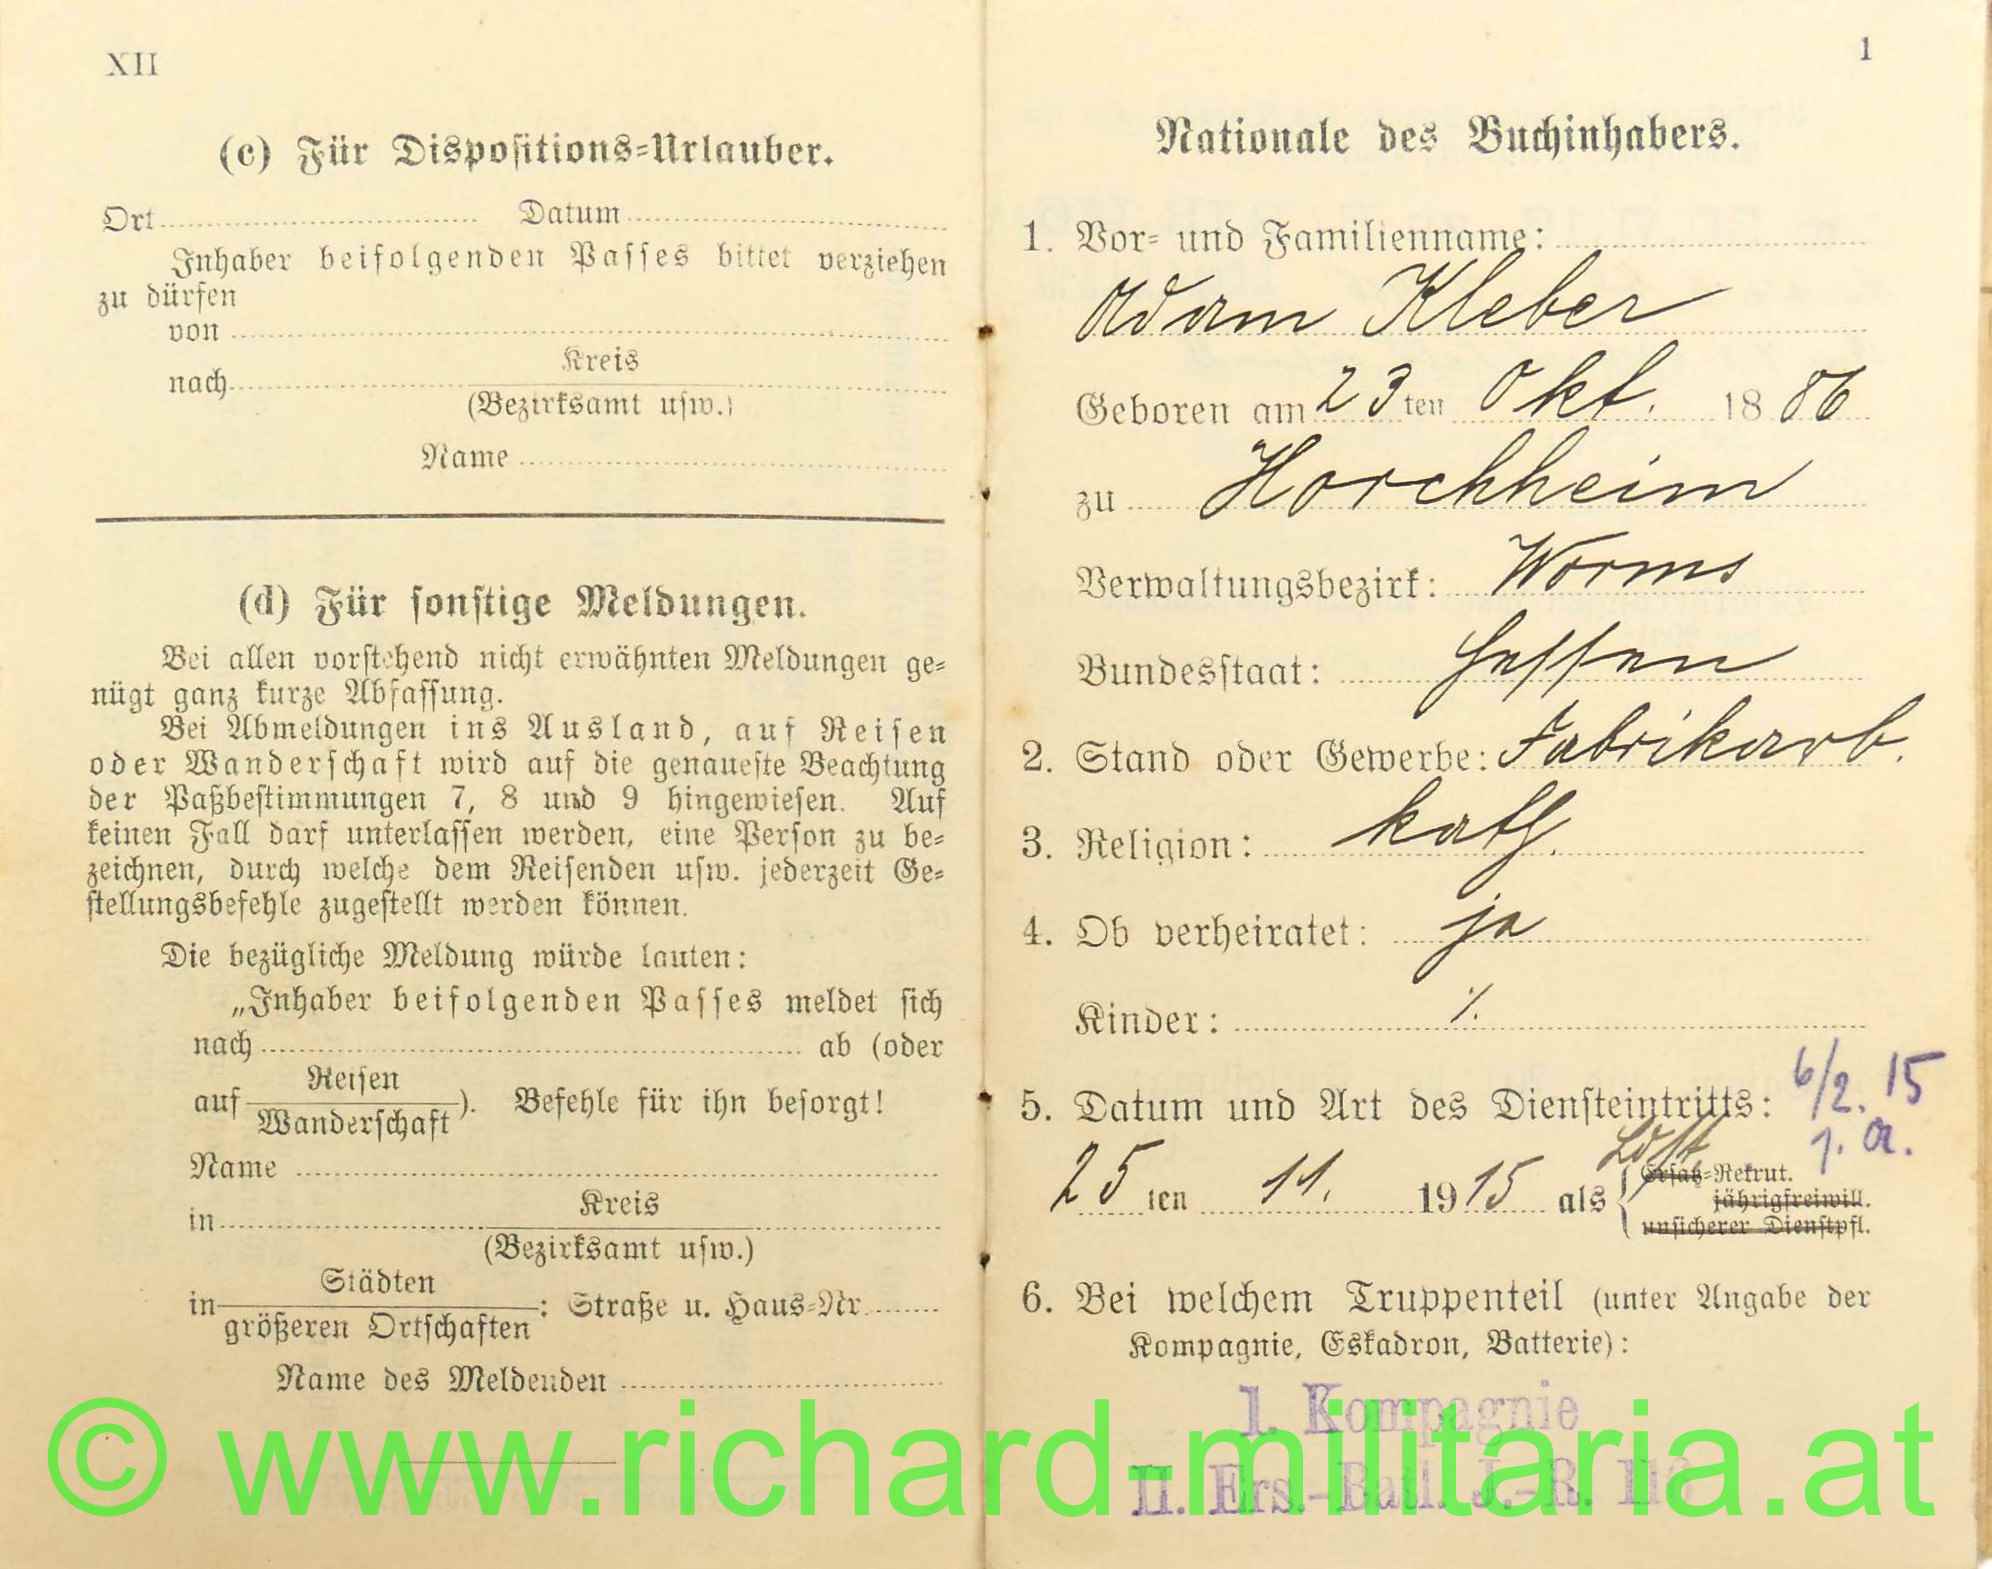 XII
(c) Für Dispositions-Urlauber.
Ort Datum
Inhaber beifolgenden Passes bittet verziehen
zu dürfen
von
Kreis
nach
(Bezirksamt usw.)
Name
(d) Für sonstige Meldungen.
Bei allen vorstehend nicht erwähnten Meldungen ge-
nügt ganz kurze Abfassung.
Bei Abmeldungen ins Ausland, auf Reisen
oder Wanderschaft wird auf die genaueste Beachtung
der Paßbestimmungen 7, 8 und 9 hingewiesen. Auf
keinen Fall darf unterlassen werden, eine Person zu be-
zeichnen, durch welche dem Reisenden usw. jederzeit Ge-
stellungsbefehle zugestellt werden können.
Die bezügliche Meldung würde lauten:
„Inhaber beifolgenden Passes meldet sich
nach ab (oder
Reisen
auf ). Befehle für ihn besorgt!
Wanderschaft
Name
Kreis
in
(Bezirksamt usw.)
Städten
in : Straße u. Haus-Nr.
größeren Ortschaften
Name des Meldenden
1
Nationale des Buchinhabers.
1. Vor- und Familienname:
Adam Kleber
Geboren am 23ten Okt. 1886
zu Horchheim
Verwaltungsbezirk: Worms
Bundesstaat: Hessen
2. Stand oder Gewerbe: Fabrikarb.
3. Religion: kath.
4. Ob verheiratet: ja
Kinder: %
6/2. 15
5. Datum und Art des Diensteintritts:
J. A.
Ldst
Ersatz-Rekrut.
25ten 11. 1915 als jährigfreiwill.
unsicherer Dienstpfl.
6. Bei welchem Truppenteil (unter Angabe der
Kompagnie, Eskadron, Batterie):
1. Kompagnie
II. Ers.-Batl. J.-R. 118
© www.richard-militaria.at